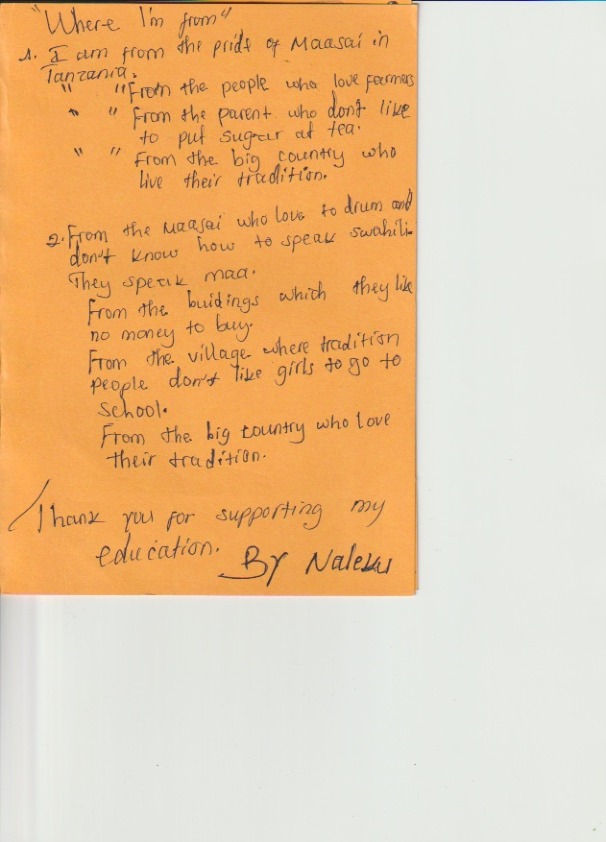 "Where I'm from"
1. I am from the pride of Maasai in
Tanzania.
" " From the people who love farmers
" " From the parent who don't like
to put sugar at tea.
" " From the big country who
live their tradition.
2. From the Maasai who love to drum and
don't know how to speak swahili.
They speak maa.
From the buidings which they like
no money to buy.
From the village where tradition
people don't like girls to go to
school.
From the big country who love
their tradition.
Thank you for supporting my
education.
By Naleku